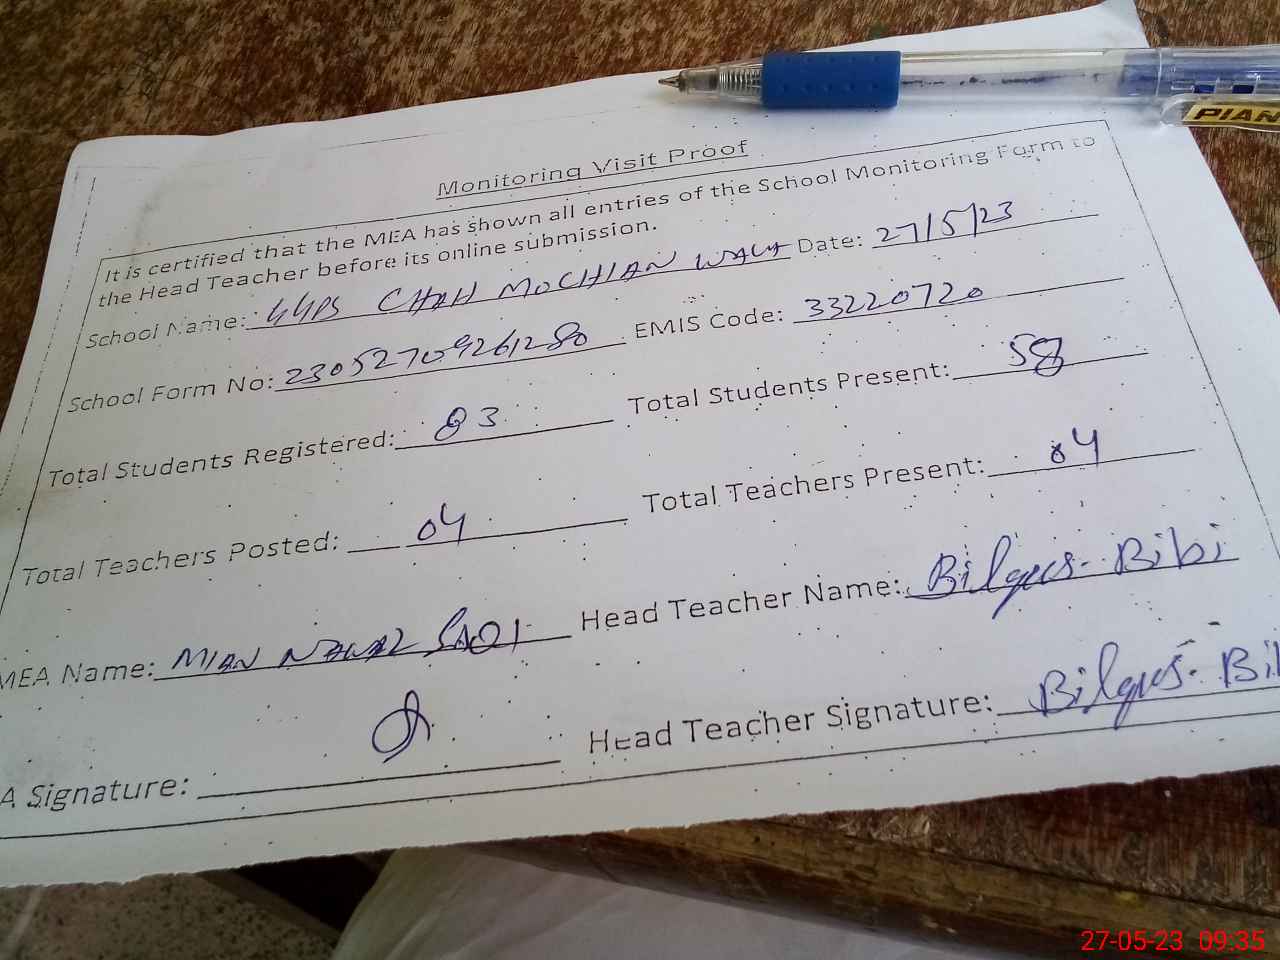 PIAN
Monitoring Visit Proof
It is certified that the MEA has shown all entries of the School Monitoring Form to
the Head Teacher before its online submission.
School Name: GGPS CHAH MOCHIAN WALA Date: 27/5/23
School Form No: 230527109261280 EMIS Code: 33220720
Total Students Registered: 83 Total Students Present: 58
Total Teachers Posted: 04 Total Teachers Present: 04
MEA Name: MIAN NAWAZ SAQI Head Teacher Name: Bilques. Bibi
A Signature: Head Teacher Signature: Bilques. Bi
27-05-23 09:35